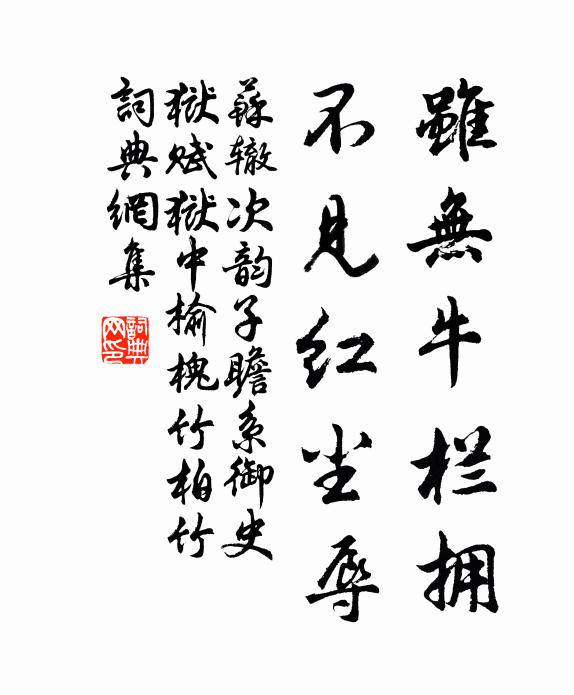 雖無牛栏拥
不见红尘辱
蘇辙次韵子瞻系御史
獄赋獄中榆槐竹柏竹
詞典網集
詞典网印